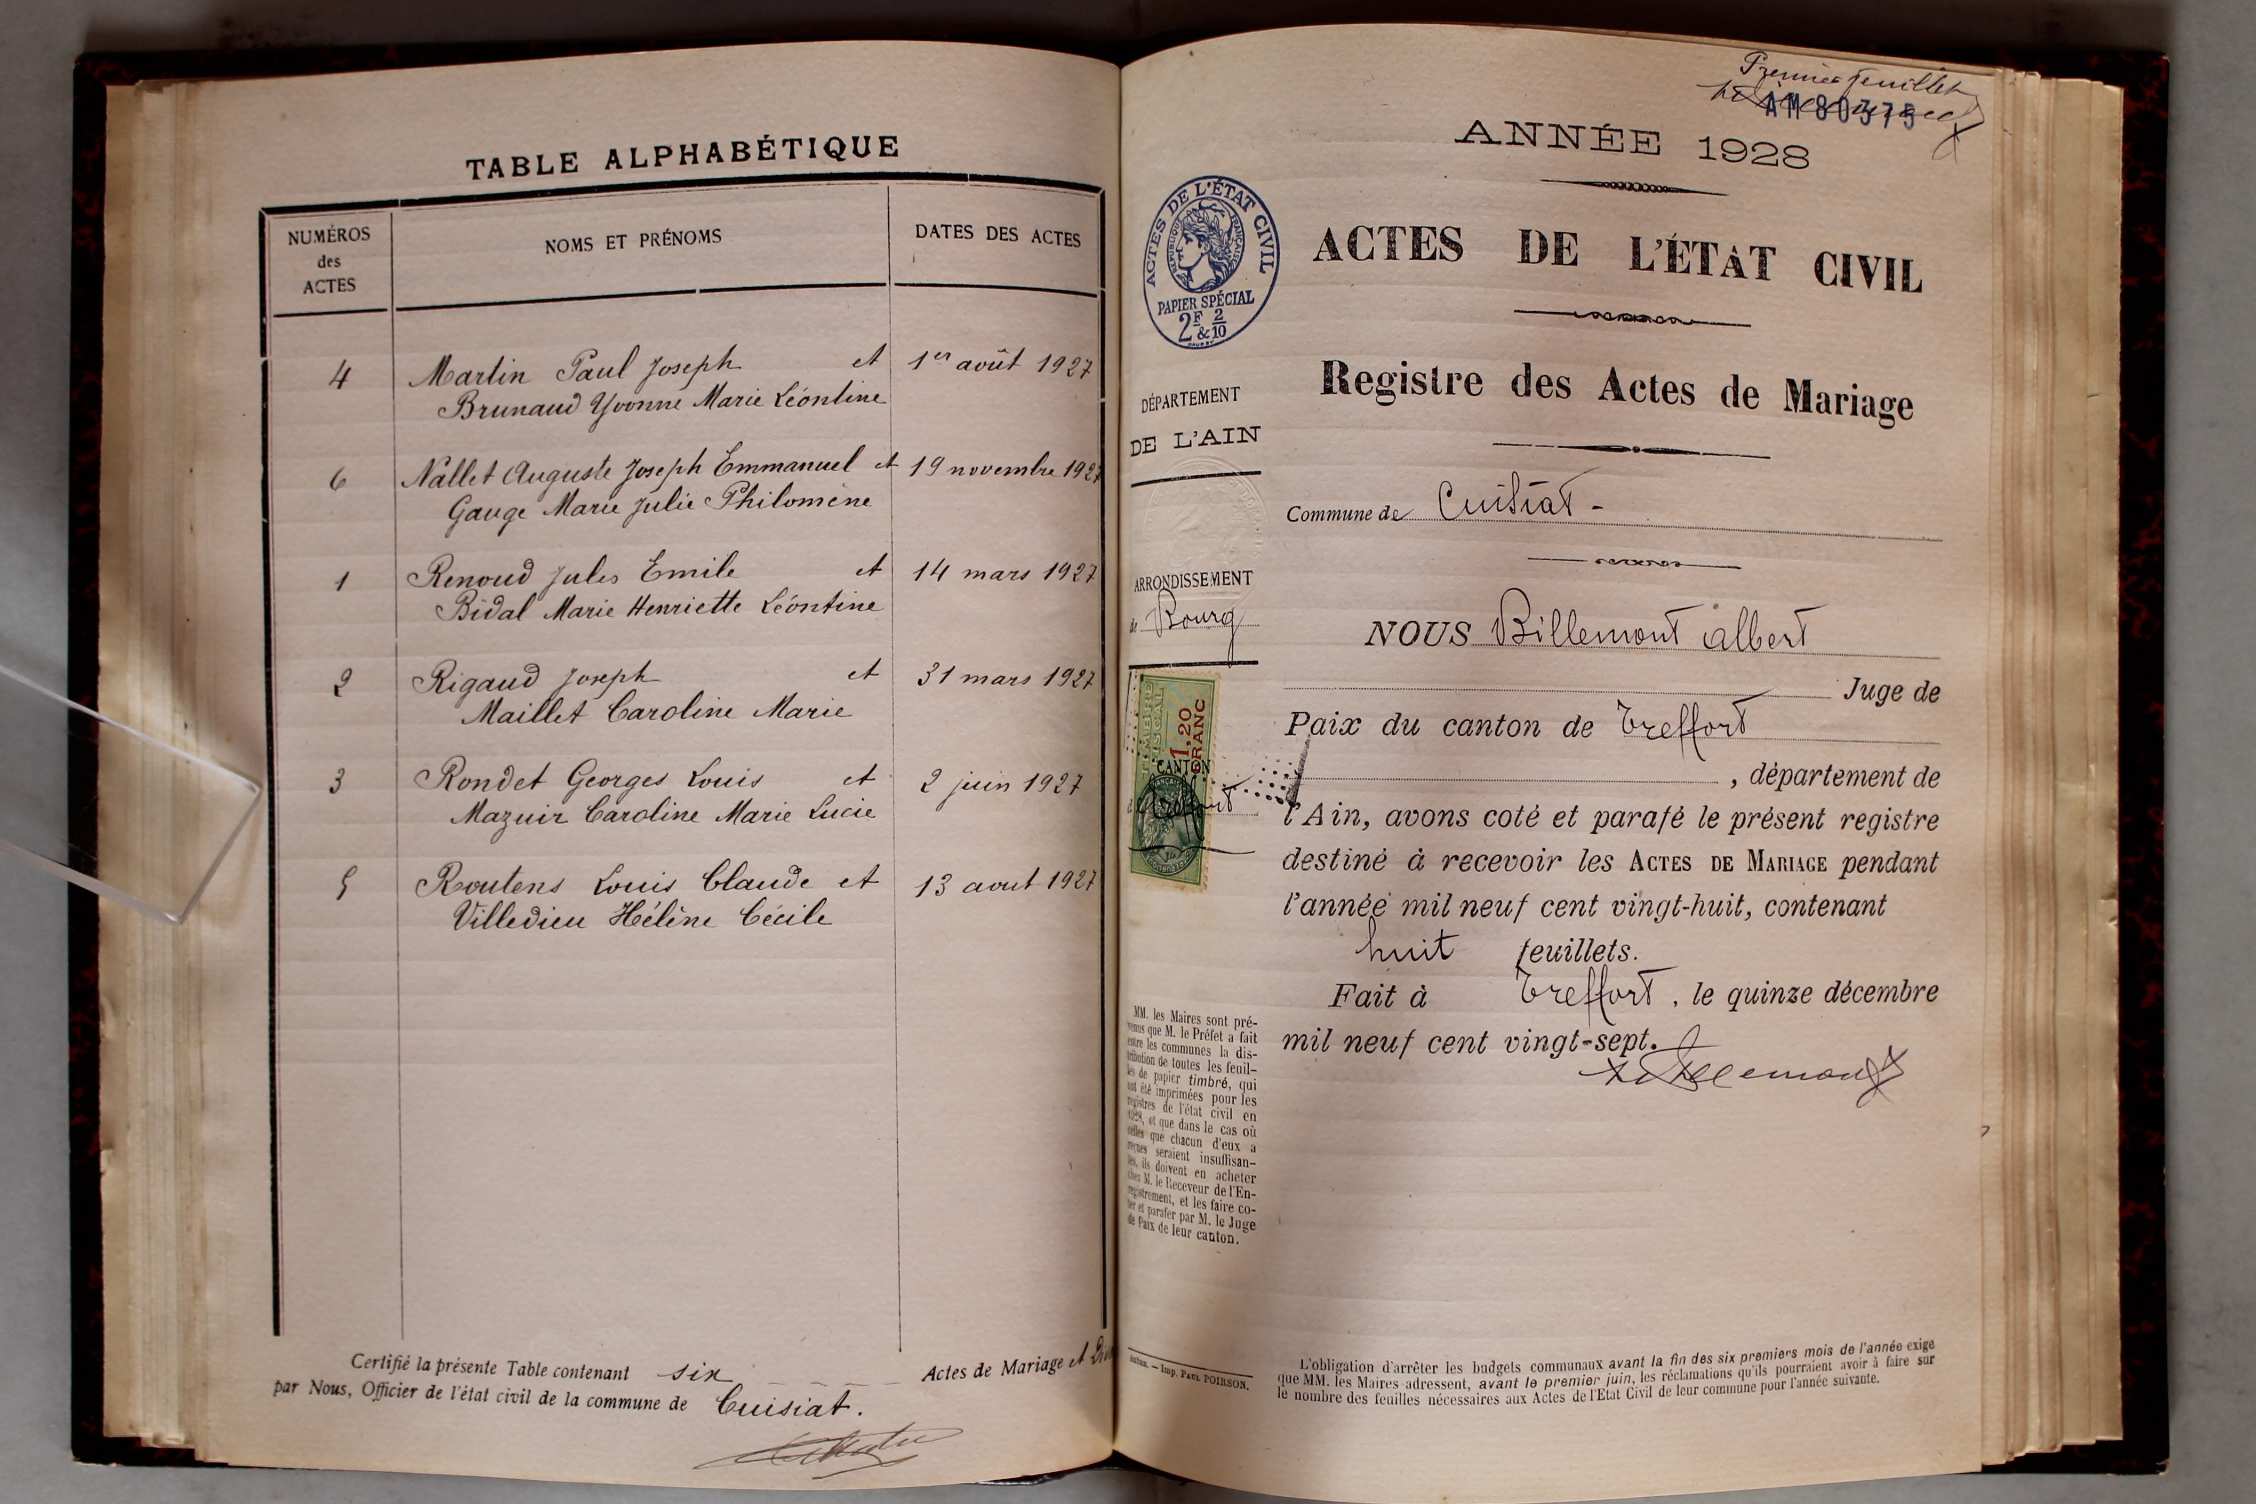 TABLE ALPHABÉTIQUE
NUMÉROS
des
ACTES
NOMS ET PRÉNOMS
DATES DES ACTES
4 Martin Paul Joseph et 1er août 1927
Brunaud Yvonne Marie Léontine
6 Nallet Auguste Joseph Emmanuel et 19 novembre 1927
Gauge Marie Julie Philomène
1 Renoud Jules Emile et 14 mars 1927
Bidal Marie Henriette Léontine
2 Rigaud Joseph et 31 mars 1927
Maillet Caroline Marie
3 Rondet Georges Louis et 2 juin 1927
Mazuir Caroline Marie Lucie
5 Routens Louis Claude et 13 aout 1927
Villedieu Hélène Cécile
Certifié la présente Table contenant six Actes de Mariage et
par Nous, Officier de l'état civil de la commune de Cuisiat.
Premier feuillet
AM 80375
ANNÉE 1928
ACTES DE L'ÉTAT CIVIL
RÉPUBLIQUE FRANÇAISE
PAPIER SPÉCIAL
2F & 2/10
ACTES DE L'ÉTAT CIVIL
Registre des Actes de Mariage
DÉPARTEMENT
DE L'AIN
Commune de Cuisiat -
ARRONDISSEMENT
de Bourg
TIMBRE
FISCAL
1,20
FRANC
CANTON
d Treffort
NOUS Billemont Albert
Juge de
Paix du canton de Treffort
, département de
l'Ain, avons coté et parafé le présent registre
destiné à recevoir les ACTES DE MARIAGE pendant
l'année mil neuf cent vingt-huit, contenant
huit feuillets.
Fait à Treffort, le quinze décembre
mil neuf cent vingt-sept.
Billemont
MM. les Maires sont pré-
venus que M. le Préfet a fait
entre les communes la dis-
tribution de toutes les feuil-
les de papier timbré, qui
ont été imprimées pour les
registres de l'état civil en
1928, et que dans le cas où
celles que chacun d'eux a
reçues seraient insuffisan-
tes, ils doivent en acheter
chez M. le Receveur de l'En-
registrement, et les faire co-
ter et parafer par M. le Juge
de Paix de leur canton.
— Imp. PAUL POIRSON.
L'obligation d'arrêter les budgets communaux avant la fin des six premiers mois de l'année exige
que MM. les Maires adressent, avant le premier juin, les réclamations qu'ils pourraient avoir à faire sur
le nombre des feuilles nécessaires aux Actes de l'Etat Civil de leur commune pour l'année suivante.